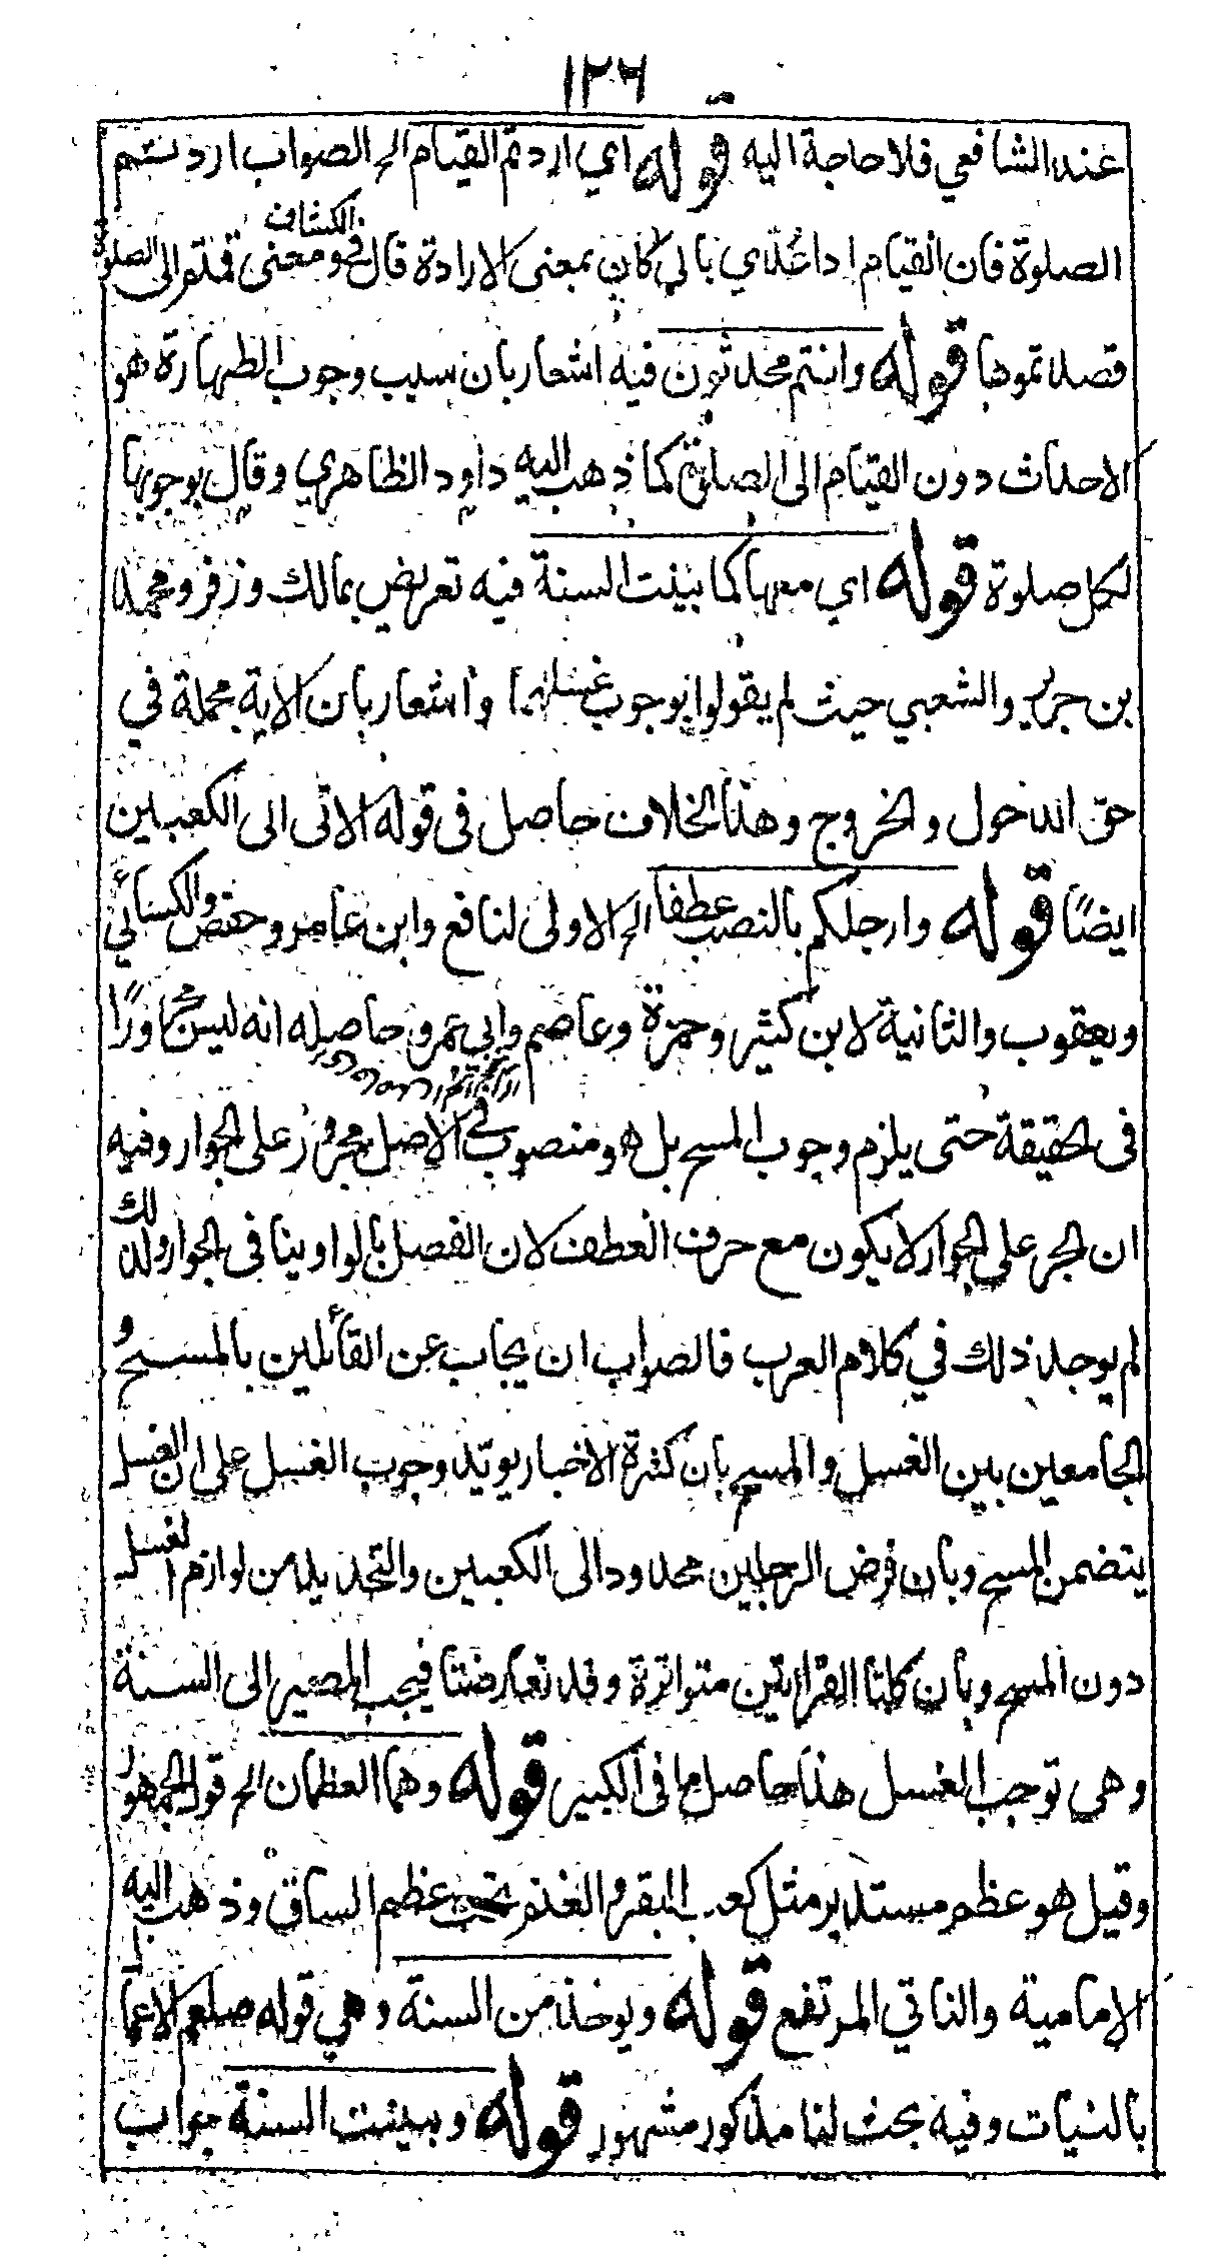 ١٢٦
عند الشافعي فلا حاجة اليه قوله اي اردتم القيام الخ الصواب اردتم
الصلوة فان القيام اذا عُدّي بالى كان بمعنى الارادة قال في الكشاف ومعنى قمتم الى الصلوة
قصدتموها قوله وانتم محدثون فيه اشعار بان سبب وجوب الطهارة هو
الاحداث دون القيام الى الصلوة كما ذهب اليه داود الظاهري وقال بوجوبها
لكل صلوة قوله اي معها كما بينت السنة فيه تعريض بمالك وزفر ومحمد
بن جرير والشعبي حيث لم يقولوا بوجوب غسلهما واشعار بان الاية مجملة في
حق الدخول والخروج وهذا الخلاف حاصل في قوله الاتى الى الكعبين
ايضًا قوله وارجلكم بالنصب عطفا الخ الاولى لنافع وابن عامر وحفص والكسائي
ويعقوب والثانية لابن كثير وحمزة وعاصم وابي عمرو حاصله انه ليس مجرورًا
في الحقيقة حتى يلزم وجوب المسح بل هو منصوب في الاصل مجرور على الجوار وفيه
ان الجر على الجوار لا يكون مع حرف العطف لان الفصل بالواو ينافى الجوار ولذلك
لم يوجد ذلك في كلام العرب فالصواب ان يجاب عن القائلين بالمسح و
الجامعين بين الغسل والمسح بان كثرة الاخبار يويّد وجوب الغسل على ان الغسل
يتضمن المسح وبان فرض الرجلين محدود الى الكعبين والتحديد من لوازم الغسل
دون المسح وبان كلتا القراءتين متواترة وقد تعارضتا فيجب المصير الى السنة
وهى توجب الغسل هذا حاصل ما فى الكبير قوله وهما العظمان الخ قول الجمهور
وقيل هو عظم مستدير مثل كعب البقر والغنم تحت عظم الساق وذهب اليه
الامامية والناتي المرتفع قوله ويوخذ من السنة وهي قوله صلعم الاعمال
بالنيات وفيه بحث لنا مذكور مشهور قوله وبينت السنة جواب